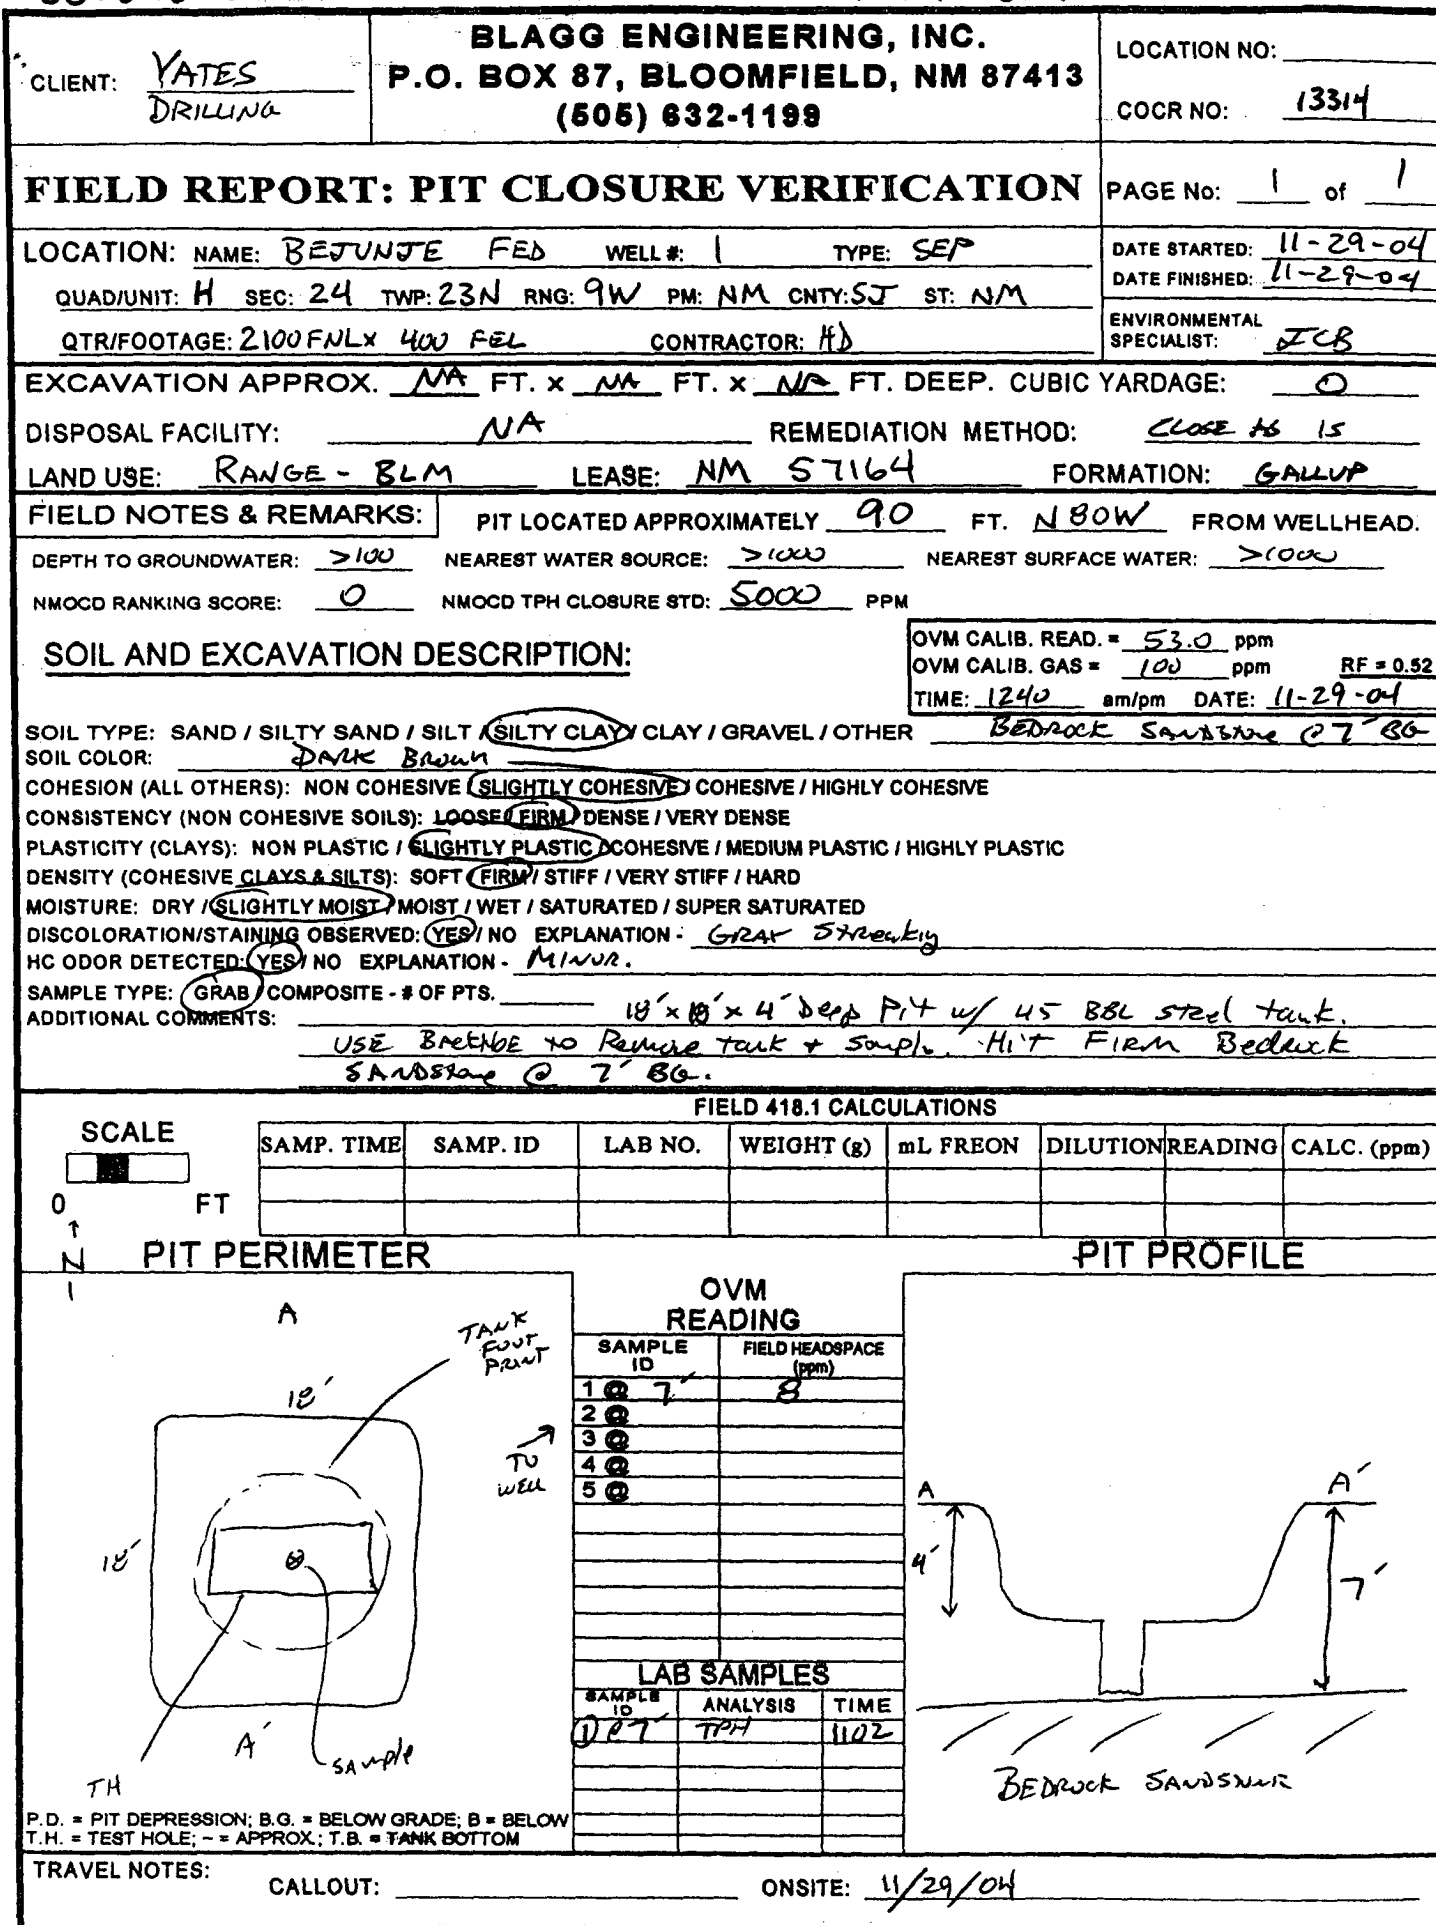 BLAGG ENGINEERING, INC.
P.O. BOX 87, BLOOMFIELD, NM 87413
(505) 632-1199
CLIENT: YATES
DRILLING
LOCATION NO:
COCR NO: 13314
FIELD REPORT: PIT CLOSURE VERIFICATION
PAGE No: 1 of 1
LOCATION: NAME: BEJUNJE FED WELL #: 1 TYPE: SEP
QUAD/UNIT: H SEC: 24 TWP: 23N RNG: 9W PM: NM CNTY: SJ ST: NM
QTR/FOOTAGE: 2100 FNL x 400 FEL CONTRACTOR: HD
DATE STARTED: 11-29-04
DATE FINISHED: 11-29-04
ENVIRONMENTAL
SPECIALIST: JCB
EXCAVATION APPROX. NA FT. x NA FT. x NA FT. DEEP. CUBIC YARDAGE: 0
DISPOSAL FACILITY: NA REMEDIATION METHOD: CLOSE AS IS
LAND USE: RANGE - BLM LEASE: NM 57164 FORMATION: GALLUP
FIELD NOTES & REMARKS: PIT LOCATED APPROXIMATELY 90 FT. N80W FROM WELLHEAD.
DEPTH TO GROUNDWATER: >100 NEAREST WATER SOURCE: >1000 NEAREST SURFACE WATER: >1000
NMOCD RANKING SCORE: 0 NMOCD TPH CLOSURE STD: 5000 PPM
SOIL AND EXCAVATION DESCRIPTION:
OVM CALIB. READ. = 53.0 ppm
OVM CALIB. GAS = 100 ppm RF = 0.52
TIME: 1240 am/pm DATE: 11-29-04
SOIL TYPE: SAND / SILTY SAND / SILT / SILTY CLAY / CLAY / GRAVEL / OTHER BEDROCK SANDSTONE @ 7' BG
SOIL COLOR: DARK BROWN
COHESION (ALL OTHERS): NON COHESIVE / SLIGHTLY COHESIVE / COHESIVE / HIGHLY COHESIVE
CONSISTENCY (NON COHESIVE SOILS): LOOSE / FIRM / DENSE / VERY DENSE
PLASTICITY (CLAYS): NON PLASTIC / SLIGHTLY PLASTIC / COHESIVE / MEDIUM PLASTIC / HIGHLY PLASTIC
DENSITY (COHESIVE CLAYS & SILTS): SOFT / FIRM / STIFF / VERY STIFF / HARD
MOISTURE: DRY / SLIGHTLY MOIST / MOIST / WET / SATURATED / SUPER SATURATED
DISCOLORATION/STAINING OBSERVED: YES / NO EXPLANATION - GRAY STREAKING
HC ODOR DETECTED: YES / NO EXPLANATION - MINOR.
SAMPLE TYPE: GRAB / COMPOSITE - # OF PTS.
ADDITIONAL COMMENTS: 18' x 18' x 4' Deep Pit w/ 45 BBL steel tank.
USE BACKHOE to Remove tank + sample. Hit FIRM Bedrock
SANDSTONE @ 7' BG.
FIELD 418.1 CALCULATIONS
SCALE
0 FT
SAMP. TIME SAMP. ID LAB NO. WEIGHT (g) mL FREON DILUTION READING CALC. (ppm)
N
PIT PERIMETER
PIT PROFILE
A
TANK
FOOT
PRINT
18'
18'
TO
WELL
A'
TH
SAMPLE
OVM
READING
SAMPLE
ID
FIELD HEADSPACE
(ppm)
1 @ 7' 8
2 @
3 @
4 @
5 @
LAB SAMPLES
SAMPLE
ID ANALYSIS TIME
① @ 7' TPH 1102
A
A'
4'
7'
BEDROCK SANDSTONE
P.D. = PIT DEPRESSION; B.G. = BELOW GRADE; B = BELOW
T.H. = TEST HOLE; ~ = APPROX.; T.B. = TANK BOTTOM
TRAVEL NOTES:
CALLOUT: ONSITE: 11/29/04